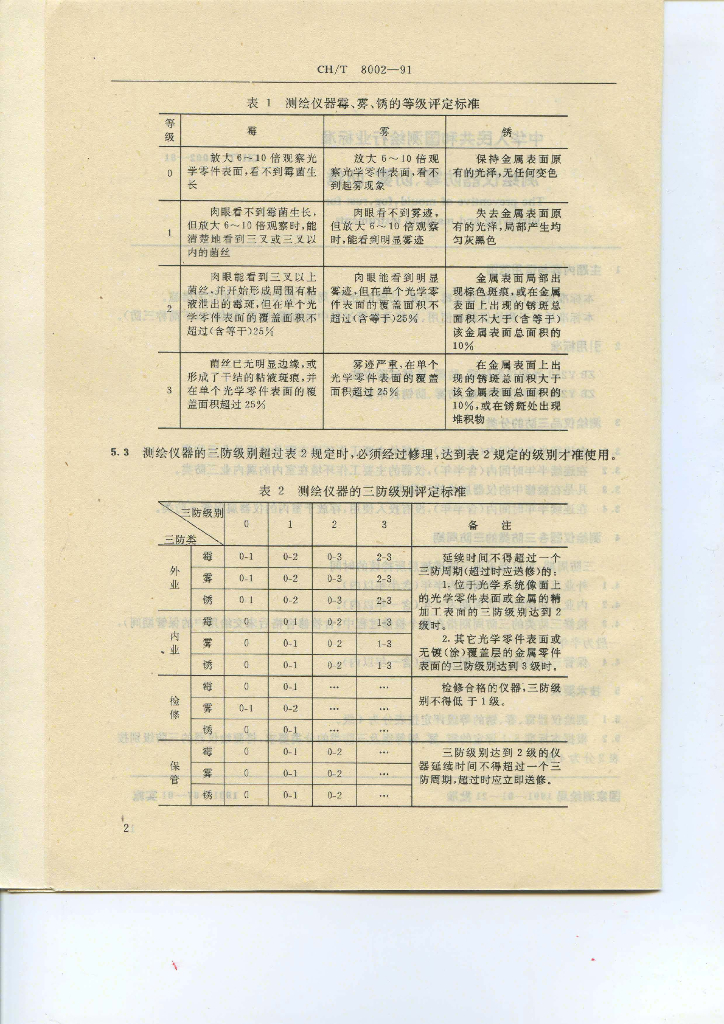 CH/T 8002—91
表 1 测绘仪器霉、雾、锈的等级评定标准
等级 霉 雾 锈
0
放大 6~10 倍观察光
学零件表面,看不到霉菌生
长
放大 6~10 倍观
察光学零件表面,看不
到起雾现象
保持金属表面原
有的光泽,无任何变色
1
肉眼看不到霉菌生长,
但放大 6~10 倍观察时,能
清楚地看到三叉或三叉以
内的菌丝
肉眼看不到雾迹,
但放大 6~10 倍观察
时,能看到明显雾迹
失去金属表面原
有的光泽,局部产生均
匀灰黑色
2
肉眼能看到三叉以上
菌丝,并开始形成周围有粘
液泄出的霉斑,但在单个光
学零件表面的覆盖面积不
超过(含等于)25%
肉眼能看到明显
雾迹,但在单个光学零
件表面的覆盖面积不
超过(含等于)25%
金属表面局部出
现棕色斑痕,或在金属
表面上出现的锈斑总
面积不大于(含等于)
该金属表面总面积的
10%
3
菌丝已无明显边缘,或
形成了干结的粘液斑痕,并
在单个光学零件表面的覆
盖面积超过 25%
雾迹严重,在单个
光学零件表面的覆盖
面积超过 25%
在金属表面上出
现的锈斑总面积大于
该金属表面总面积的
10%,或在锈斑处出现
堆积物
5.3 测绘仪器的三防级别超过表 2 规定时,必须经过修理,达到表 2 规定的级别才准使用。
表 2 测绘仪器的三防级别评定标准
三防级别
三防类
0 1 2 3 备 注
外业
霉 0-1 0-2 0-3 2-3
雾 0-1 0-2 0-3 2-3
锈 0-1 0-2 0-3 2-3
延续时间不得超过一个
三防周期(超过时应送修)的:
1. 位于光学系统像面上
的光学零件表面或金属的精
加工表面的三防级别达到 2
级时。
2. 其它光学零件表面或
无镀(涂)覆盖层的金属零件
表面的三防级别达到 3 级时。
内业
霉 0 0-1 0-2 1-3
雾 0 0-1 0-2 1-3
锈 0 0-1 0-2 1-3
检修
霉 0 0-1 … …
雾 0-1 0-2 … …
锈 0 0-1 … …
检修合格的仪器,三防级
别不得低于 1 级。
保管
霉 0 0-1 0-2 …
雾 0 0-1 0-2 …
锈 0 0-1 0-2 …
三防级别达到 2 级的仪
器延续时间不得超过一个三
防周期,超过时应立即送修。
2